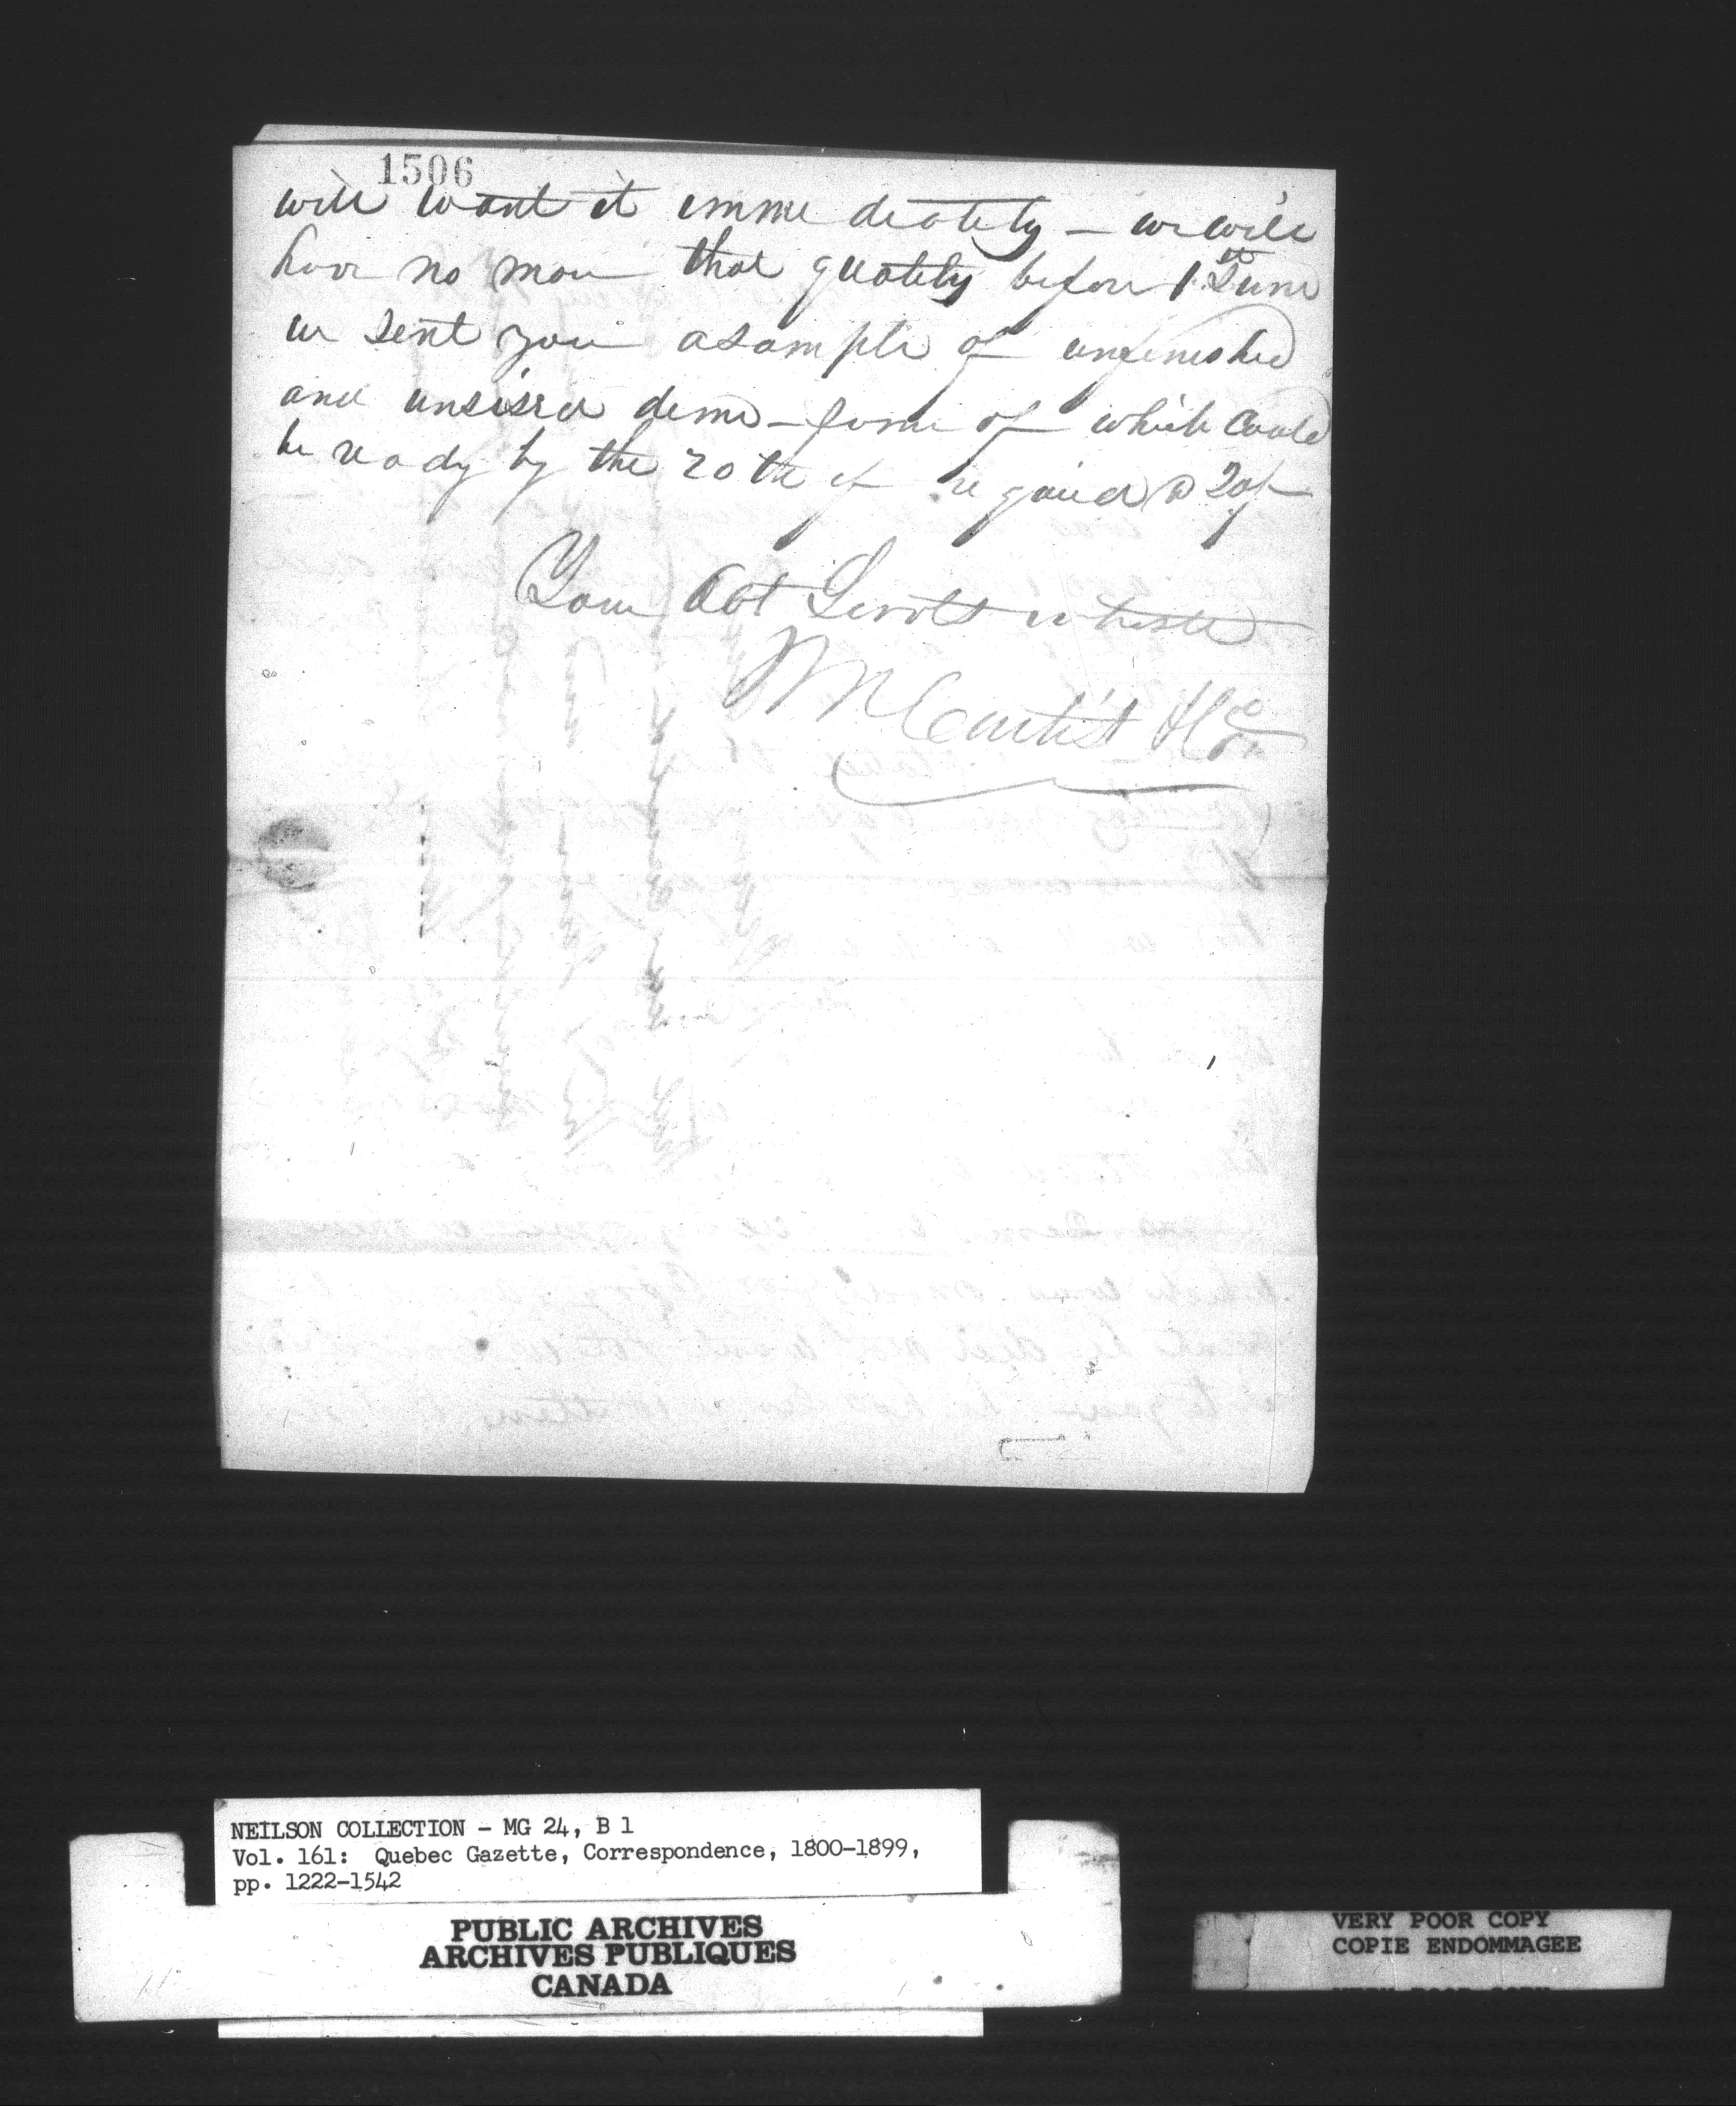 1506
will want it imme diately – we will
have no more that quality before 1st June
we sent you a sample of unfinished
and unsised demi – some of which could
be ready by the 20th if required @ 20/-
Your Obt Servts in haste
& Co
NEILSON COLLECTION – MG 24, B 1
Vol. 161: Quebec Gazette, Correspondence, 1800-1899,
pp. 1222-1542
PUBLIC ARCHIVES
ARCHIVES PUBLIQUES
CANADA
VERY POOR COPY
COPIE ENDOMMAGEE